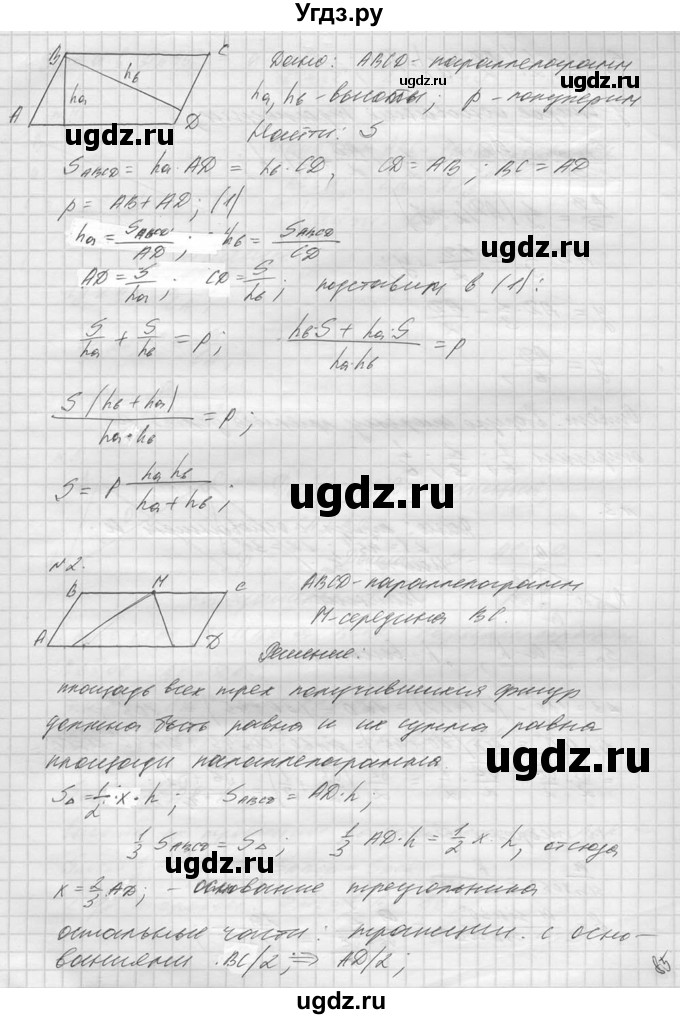 Угдз.ру
B C
h_в
h_a
A D
Дано: ABCD - параллелограмм
ugdz.ru
h_a, h_в - высоты; p - полуперим
ugdz.ru ugdz.ru
Найти: S
S_ABCD = h_a · AD = h_в · CD, CD = AB; BC = AD
p = AB + AD; (1)
h_a = S_ABCD / AD; h_в = S_ABCD / CD
AD = S / h_a; CD = S / h_в; подставим в (1):
S / h_a + S / h_в = p; (h_в · S + h_a · S) / (h_a · h_в) = p
S (h_в + h_a) / (h_a · h_в) = p;
S = p h_a h_в / (h_a + h_в);
ugdz.ru
N2.
B M C
A D
ABCD - параллелограмм
M - середина BC.
ugdz.ru
Решение:
площадь всех трех получившихся фигур
должна быть равна и их сумма равна
ugdz.ru
площади параллелограмма
S_Δ = 1/2 · x · h; S_ABCD = AD · h;
1/3 S_ABCD = S_Δ; 1/3 AD · h = 1/2 x · h, отсюда
ugdz.ru
x = 2/3 AD; - основание треугольника
остальные части: трапеции с осно-
ваниями BC/2; ⇒ AD/2;
ugdz.ru
85
ugdz.ru